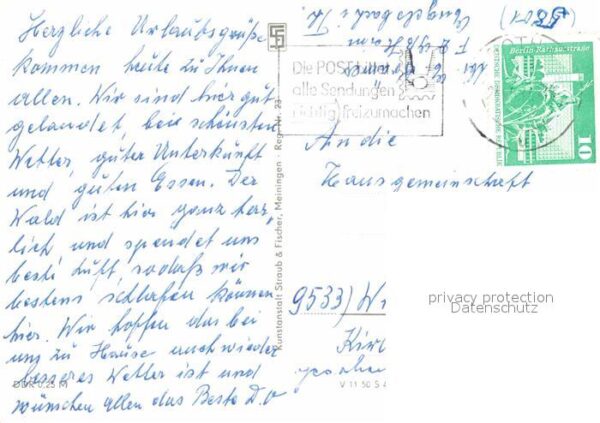 Herzliche Urlaubsgrüße
kommen heute zu Ihnen
allen. Wir sind hier gut
gelandet, bei schönstem
Wetter, guter Unterkunft
und guten Essen. Der
Wald ist hier ganz herr,
lich und spendet uns
beste Luft, sodaß wir
bestens schlafen können
hier. Wir hoffen das bei
uns zu Hause auch wieder
besseres Wetter ist und
wünschen allen das Beste D.O
DDR 0,25 M
Kunstanstalt Straub & Fischer, Meiningen · Reg.-Nr. 23
V 11 50 S 4
Die POST bittet
alle Sendungen
richtig freizumachen
Engelsbach i. Th.
(5801)
Berlin Rathausstraße
DEUTSCHE DEMOKRATISCHE REPUBLIK
10
An die
Hausgemeinschaft
9533) W
privacy protection
Datenschutz